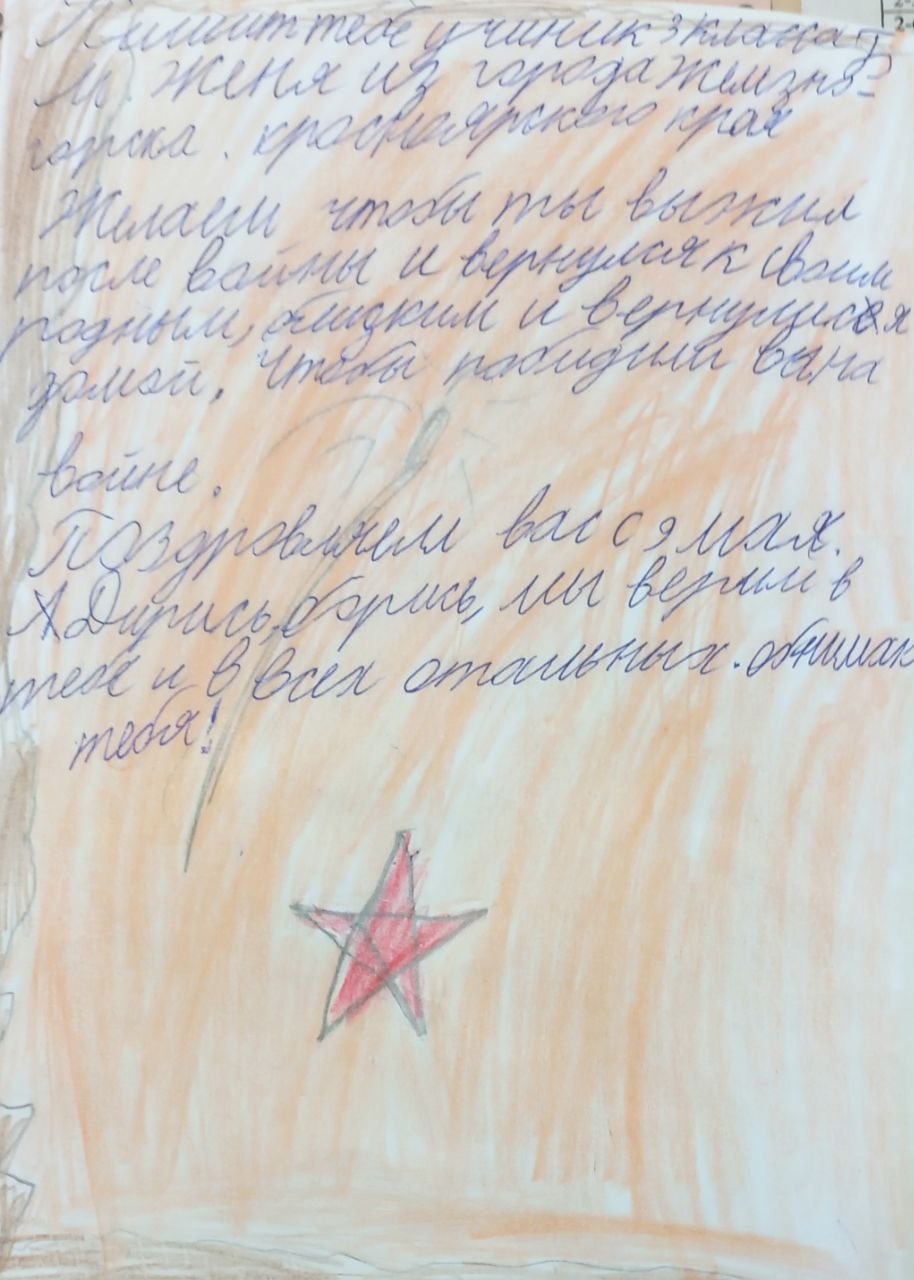 Пишит тебе учиник 3 класса
М. Женя из города Железно-
горска. красноярского края
Желаем чтобы ты выжил
после войны и вернулся к своим
родным, близким и вернулися
домой. Чтобы побидили в на
войне.
Поздровляем вас с 9 мая.
А Дирись, борись, мы верим в
тебе и в всех отальных. обнимаю
тебя!